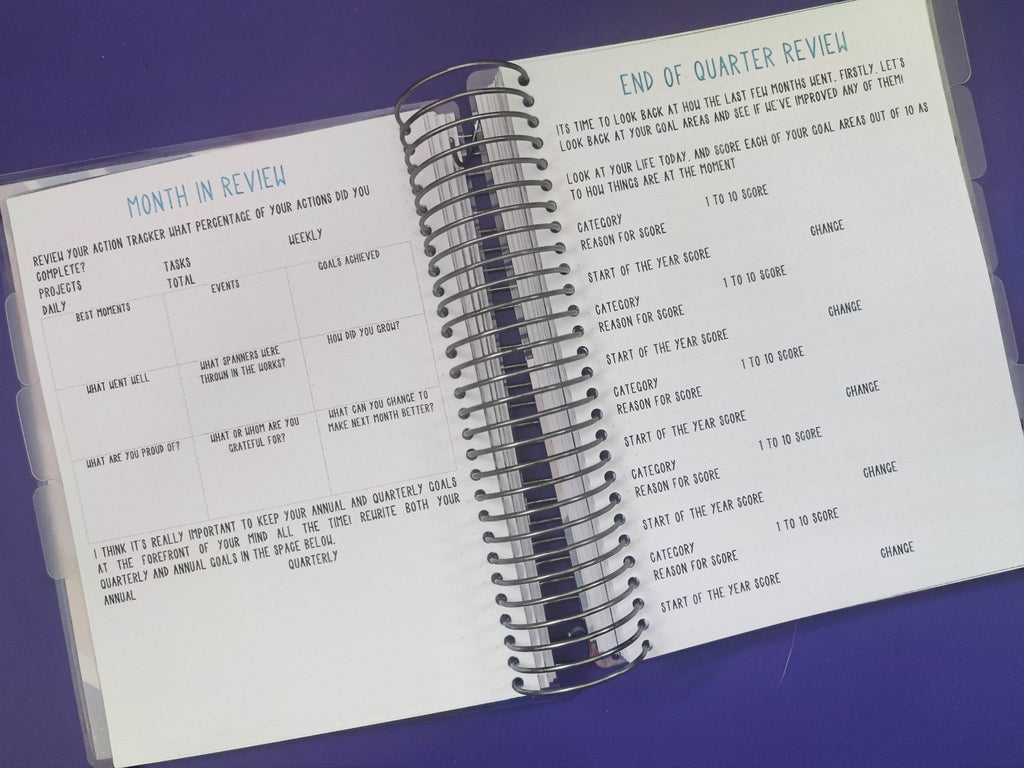 MONTH IN REVIEW
REVIEW YOUR ACTION TRACKER WHAT PERCENTAGE OF YOUR ACTIONS DID YOU
COMPLETE? TASKS WEEKLY
PROJECTS TOTAL
DAILY
BEST MOMENTS EVENTS GOALS ACHIEVED
WHAT WENT WELL WHAT SPANNERS WERE HOW DID YOU GROW?
THROWN IN THE WORKS?
WHAT ARE YOU PROUD OF? WHAT OR WHOM ARE YOU WHAT CAN YOU CHANGE TO
GRATEFUL FOR? MAKE NEXT MONTH BETTER?
I THINK IT'S REALLY IMPORTANT TO KEEP YOUR ANNUAL AND QUARTERLY GOALS
AT THE FOREFRONT OF YOUR MIND ALL THE TIME! REWRITE BOTH YOUR
QUARTERLY AND ANNUAL GOALS IN THE SPACE BELOW.
ANNUAL QUARTERLY
END OF QUARTER REVIEW
ITS TIME TO LOOK BACK AT HOW THE LAST FEW MONTHS WENT. FIRSTLY, LET'S
LOOK BACK AT YOUR GOAL AREAS AND SEE IF WE'VE IMPROVED ANY OF THEM!
LOOK AT YOUR LIFE TODAY, AND SCORE EACH OF YOUR GOAL AREAS OUT OF 10 AS
TO HOW THINGS ARE AT THE MOMENT
CATEGORY 1 TO 10 SCORE
REASON FOR SCORE
START OF THE YEAR SCORE CHANGE
CATEGORY 1 TO 10 SCORE
REASON FOR SCORE
START OF THE YEAR SCORE CHANGE
CATEGORY 1 TO 10 SCORE
REASON FOR SCORE
START OF THE YEAR SCORE CHANGE
CATEGORY 1 TO 10 SCORE
REASON FOR SCORE
START OF THE YEAR SCORE CHANGE
CATEGORY 1 TO 10 SCORE
REASON FOR SCORE
START OF THE YEAR SCORE CHANGE